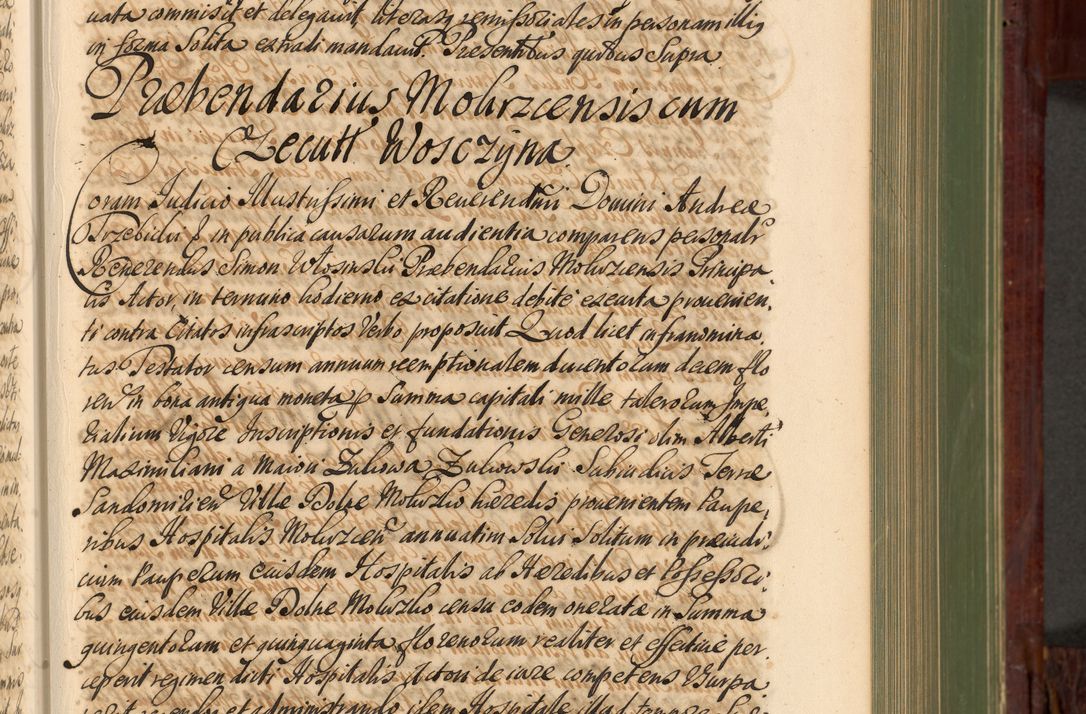 uata commisit et delegauit literasq remissoriales in personam illiq
in forma solita extradi mandauit. Presentibus quibus supra
Præbendarius Mokrzcensis cum
Execut Wosczyna
Coram Judicio Illustrissimi et Reuerendmi Domini Andreæ
Trzebicki & in publica causarum audientia comparens personalr
Reuerendus Simon Włosinski Præbendarius Mokrzcensis Principa
lis Actor, in termino hodierno ex citatione debite execut a prouenien,
ti contra Citatos infrascriptos Verbo proposuit Quod licet infranomina,
tus Testator censum annuum reemptionalem ducentorum decem flo
ren in bona antiqua moneta p summa capitali mille talerorum Impe,
rialium Vigore Inscriptionis et fundationis Generosi olim Alberti
Maximiliani a Maiori Zukowa Zukowski Subiudicis Terræ
Sandomirien Villæ Dolne Mokrzko hæredis prouenientem Paupe,
ribus Hospitalis Mokrzcen annuatim solui solitum in præiudi,
cium Pauperum eiusdem Hospitalis ab Hæredibus et Possessori,
bus eiusdem Villæ Dolne Mokrzko censu eodem oneratæ in summa
quingentorum et quinquaginta florenorum realiter et effectiue per,
ceperit regimen dicti Hospitalis Actori de iure competens Vsurpa
uerit regendo et administrando idem Hospitale illud